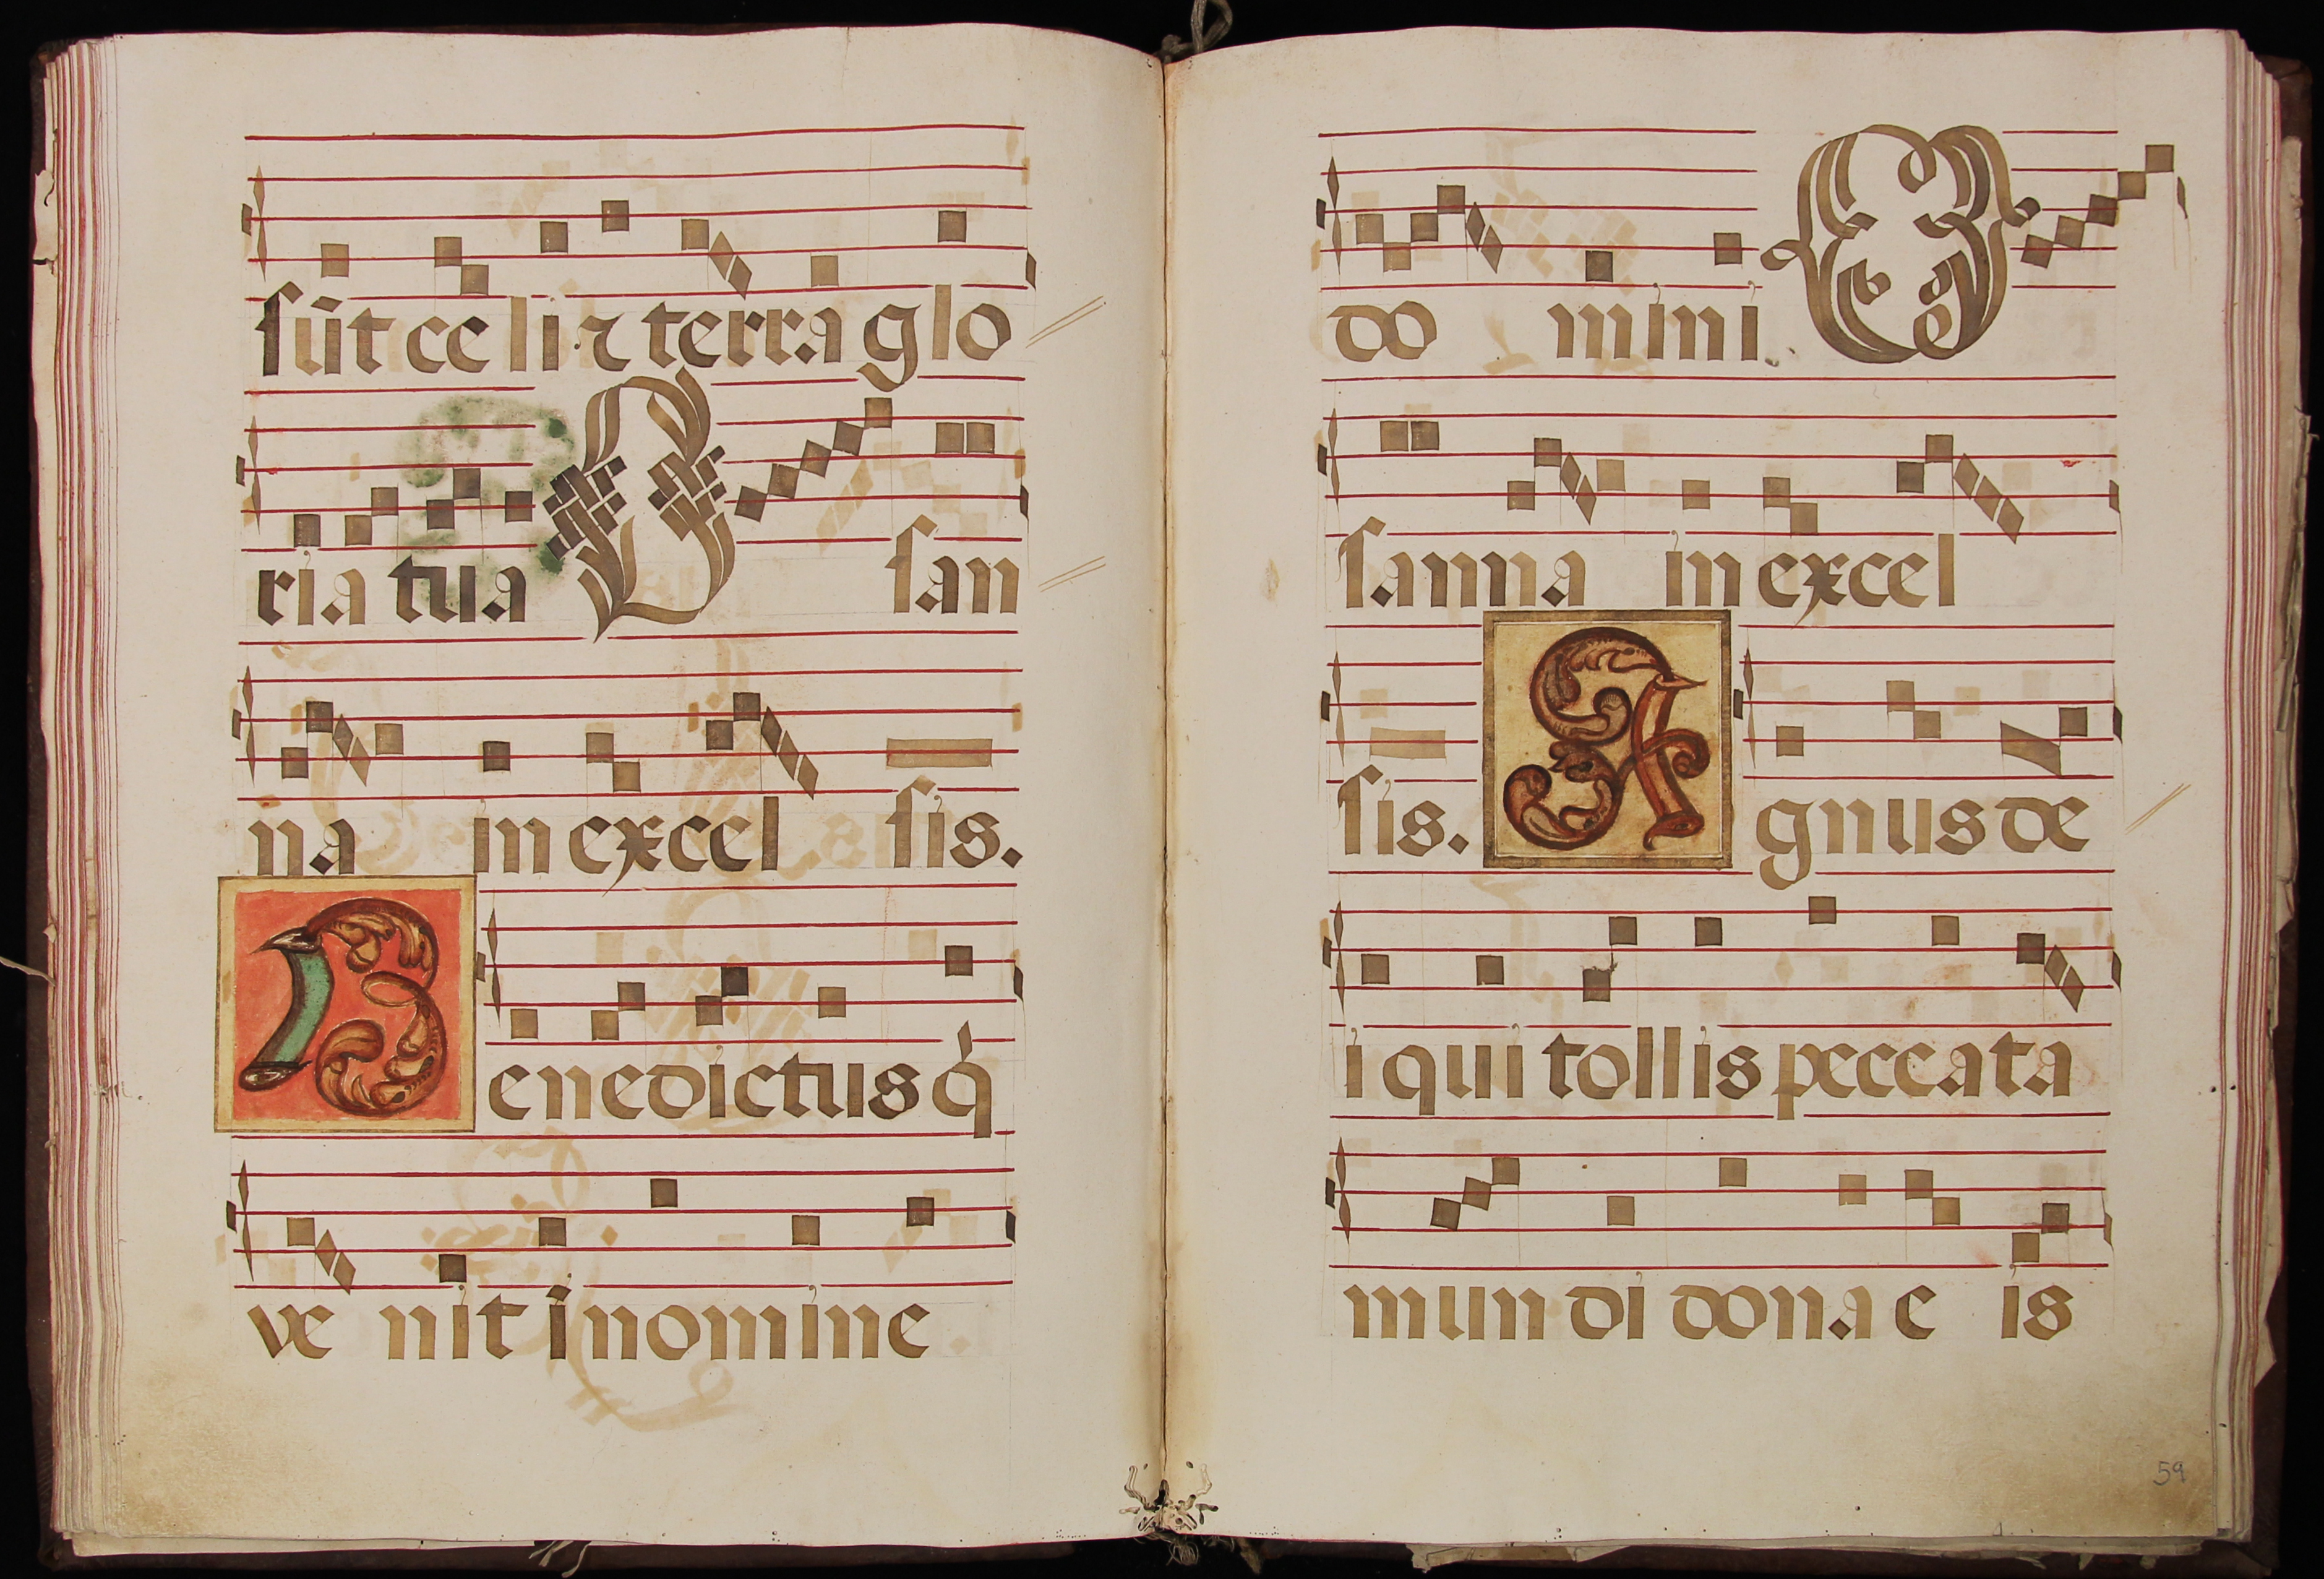 sūt celi ⁊ terra glo
ria tua O san
na in excel sis.
Benedictus q̇
ve nit i nomine
do mini O
sanna in excel
sis. Agnus de
i qui tollis peccata
mundi dona e is
59